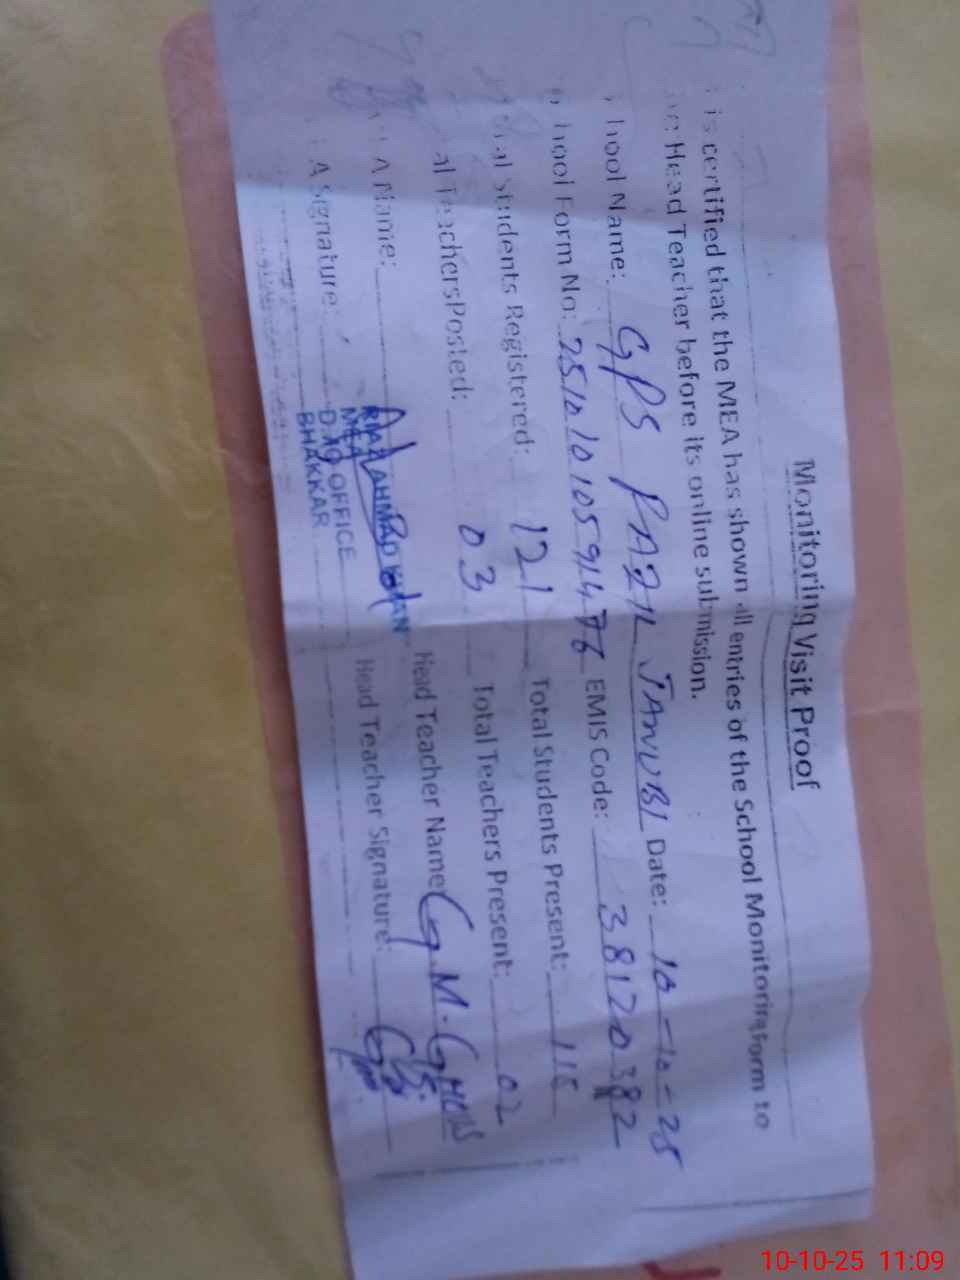 Monitoring Visit Proof
is certified that the MEA has shown all entries of the School Monitoring Form to
Head Teacher before its online submission.
hool Name: GPS FAZIL JANUBI Date: 10-10-25
hool Form No: EMIS Code: 38120382
al Students Registered: 121 Total Students Present: 115
al TeachersPosted: 03 Total Teachers Present: 02
A Name: Head Teacher Name: G.M.
RIAZ AHMAD KHAN
MEA
A Signature: Head Teacher Signature:
OFFICE
BHAKKAR
10-10-25 11:09